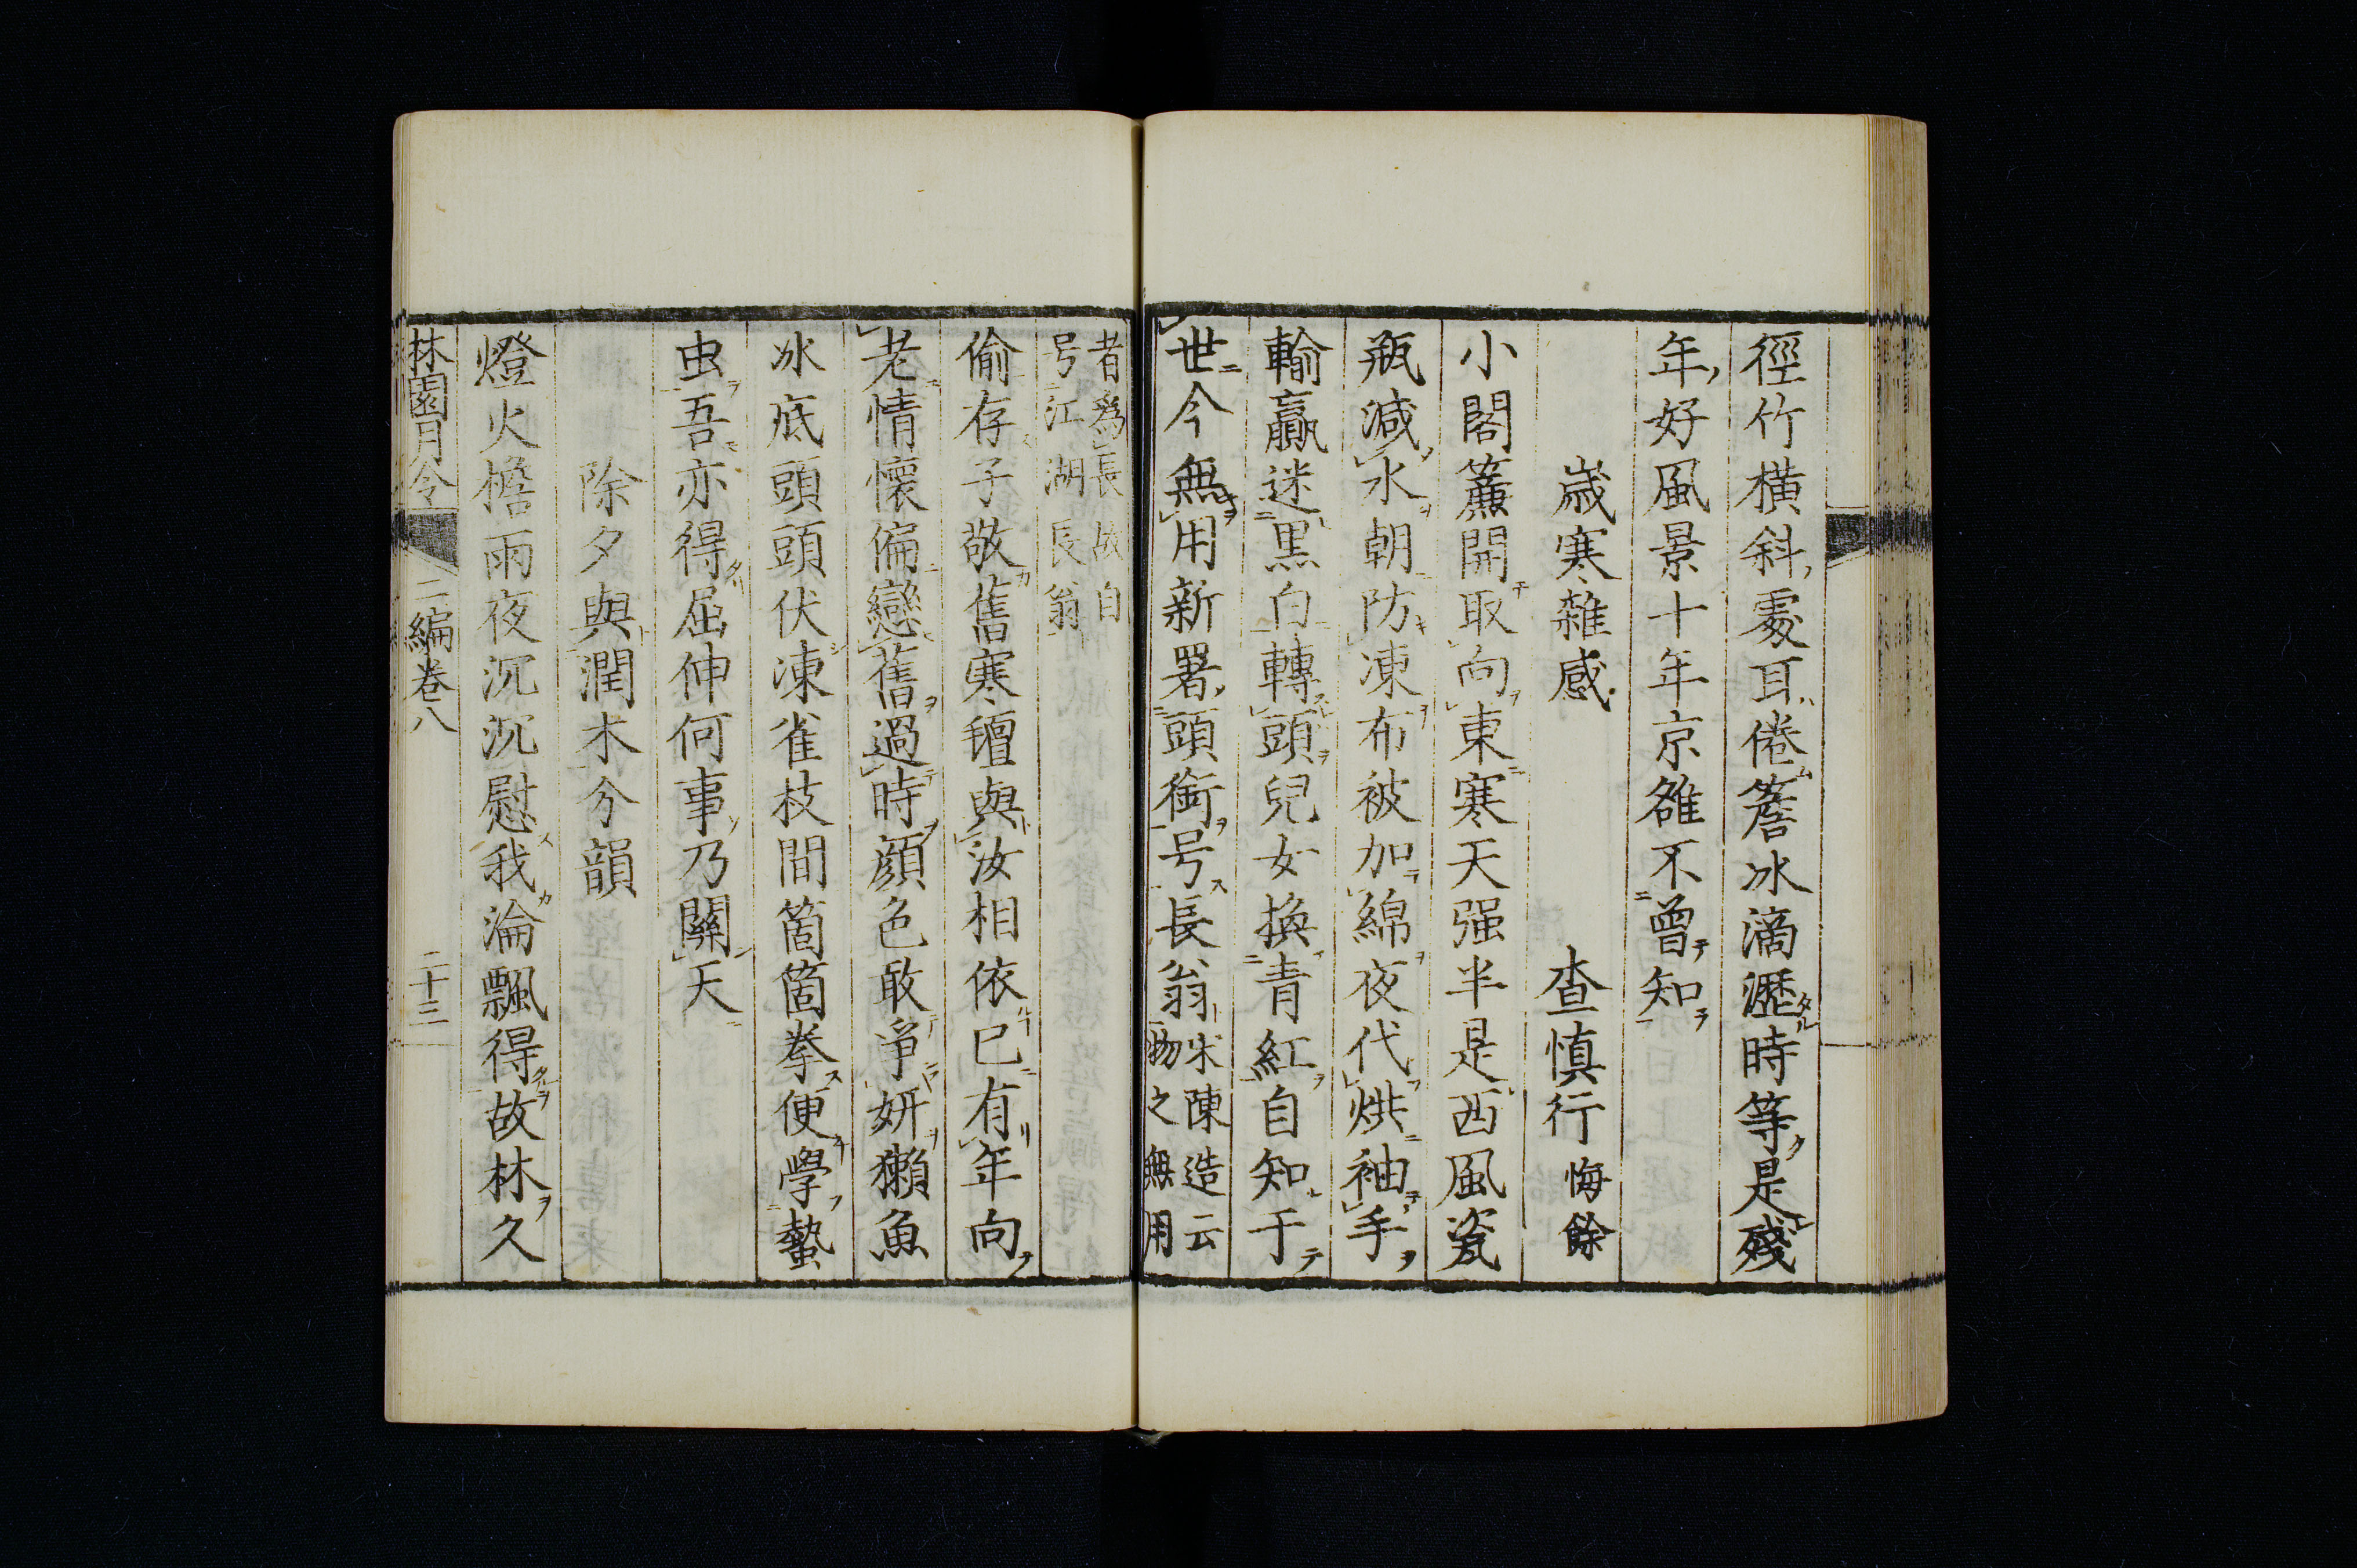 徑竹横斜處耳倦簷冰滴瀝時等是殘
年好風景十年京雒不曾知
歳寒雜感 查慎行 悔餘
小閣簾開取向東寒天强半是西風瓷
瓶減水朝防凍布被加綿夜代烘袖手
輸贏迷黒白轉頭兒女換青紅自知于
世今無用新署頭銜号長翁 宋陳造云
物之無用
者爲長長故自
号江湖長翁
偷存子敬舊寒氊與汝相依已有年向
老情懷偏戀舊過時顔色敢爭妍獺魚
冰底頭頭伏凍雀枝間箇箇拳便學蟄
虫吾亦得屈伸何事乃關天
除夕與潤木分韻
燈火檐雨夜沉沉慰我淪飄得故林久
林園月令 二編卷八 二十三